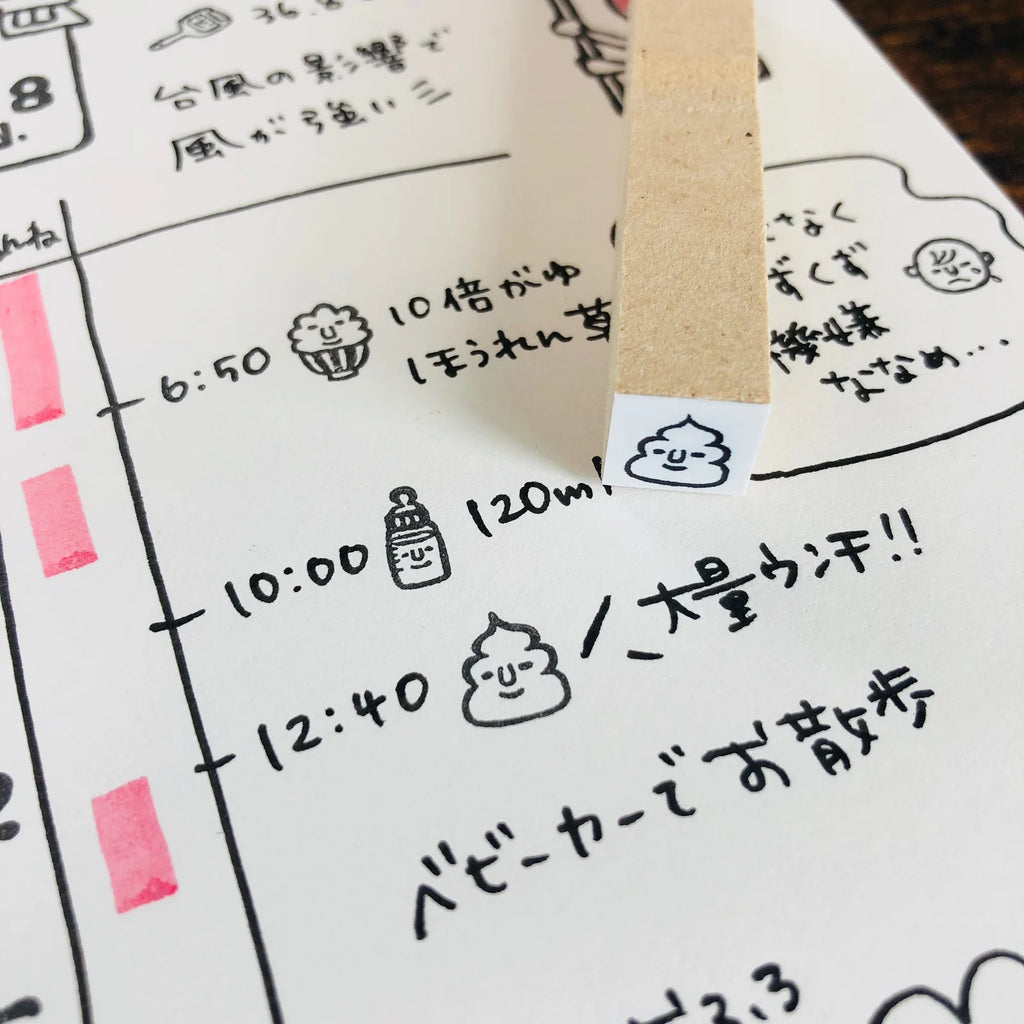 36.8
台風の影響で
風が強い
8
んね
6:50 10倍がゆ
ほうれん草
なく
ずくず
機嫌
ななめ…
10:00 120ml
12:40 大量ウンチ!!
ベビーカーでお散歩